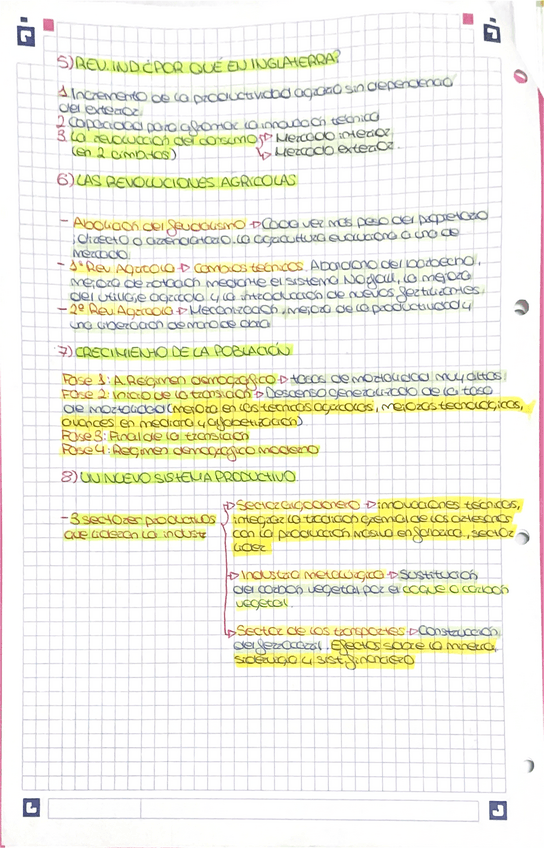 5) REV. IND ¿POR QUÉ EN INGLATERRA?
1 Incremento de la productividad agraria sin dependencia
del exterior.
2 Capacidad para afrontar la innovación técnica
3. La revolución del consumo → Mercado interior
(en 2 ámbitos) → Mercado exterior.
6) LAS REVOLUCIONES AGRÍCOLAS
- Abolición del feudalismo → Cada vez más peso del propietario
directo o arrendatario. La agricultura evoluciona a una de
mercado.
- 1ª Rev Agrícola → Cambios técnicos. Abandono del barbecho,
mejora de rotación mediante el sistema Norfolk, la mejora
del utillaje agrícola y la introducción de nuevos fertilizantes.
- 2ª Rev Agrícola → Mecanización, mejora de la productividad y
una liberación de mano de obra
7) CRECIMIENTO DE LA POBLACIÓN
Fase 1: A. Régimen demográfico → tasas de mortalidad muy altas
Fase 2: Inicio de la transición → Descenso generalizado de la tasa
de mortalidad (mejora en las técnicas agrícolas, mejoras tecnológicas,
avances en medicina y alfabetización)
Fase 3: Final de la transición
Fase 4: Régimen demográfico moderno
8) UN NUEVO SISTEMA PRODUCTIVO
- 3 sectores productivos
que lideran la industr
→ Sector algodonero → innovaciones técnicas,
integrar la tradición gremial de los artesanos
con la producción masiva en fábrica, sector
líder.
→ Industria metalúrgica → Sustitución
del carbón vegetal por el coque o carbón
vegetal.
→ Sector de los transportes → Construcción
del ferrocarril. Efectos sobre la minería,
siderurgia y sist. financiero